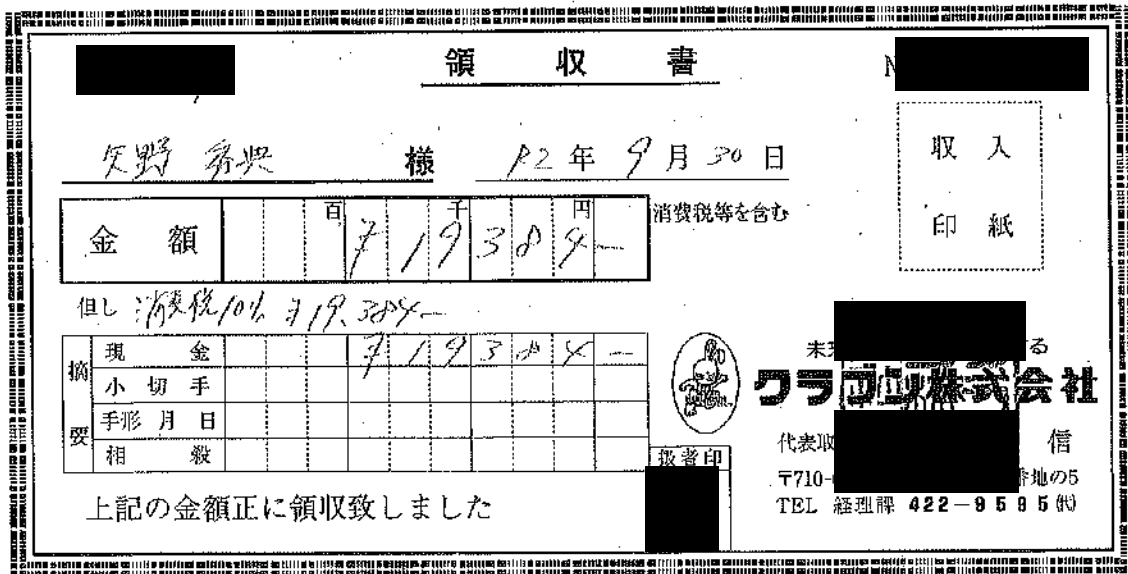 領収書
矢野 様 12年9月30日
収入
印紙
金額 百 千 円 ¥19384－ 消費税等を含む
但し 消費税10% ¥19,384－
摘要
現金 ¥19384－
小切手
手形 月 日
相殺
扱者印
上記の金額正に領収致しました
未 る
クラ 株式会社
代表取 信
〒710- 番地の5
TEL 経理課 422-9595㈹